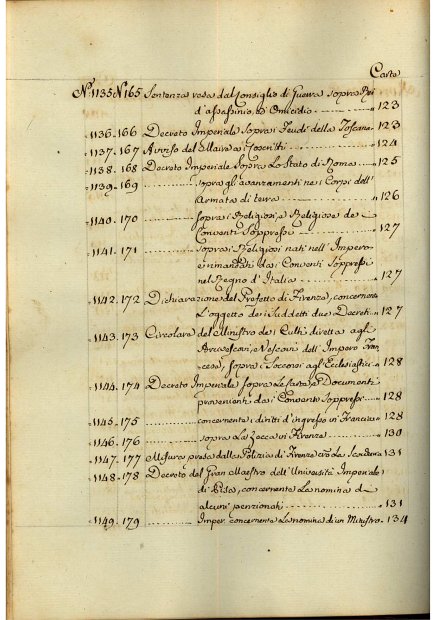 Carte
N.º 1135. N.º 165. Sentenza resa dal Consiglio di Guerra sopra Rei
d'assassinio, ed Omicidio 123
1136. 166 Decreto Imperiale sopra i Feudi della Toscana 123
1137. 167 Avviso del Maire a i Coscritti 124
1138. 168 Decreto Imperiale sopra Lo Stato di Roma 125
1139. 169 sopra gli avanzamenti nei Corpi dell'
Armata di terra 126
1140. 170 sopra i Religiosi, e Religiose de
Conventi Soppressi 127
1141. 171 sopra i Religiosi nati nell'Impero
e rimandati da i Conventi Soppressi
nel Regno d'Italia 127
1142. 172 Dichiarazione del Prefetto di Firenze, concernente
L'oggetto de i suddetti due Decreti 127
1143. 173 Circolare del Ministro de i Culti diretta agli
Arcivescovi, e Vescovi dell'Impero Fran-
cese, sopra i Soccorsi agli Ecclesiastici 128
1144. 174 Decreto Imperiale sopra Le Carte, e Documenti
provenienti da i Conventi Soppressi 128
1145. 175 concernente i diritti d'ingresso in Francia 128
1146. 176 sopra La Zecca di Firenze 130
1147. 177 Misura presa dalla Polizia di Firenze 131
1148. 178 Decreto del Gran Maestro dell'Università Imperiale
di Pisa, concernente La nomina di
alcuni pensionati 131
1149. 179 Imper. concernente La nomina di un Ministro 134